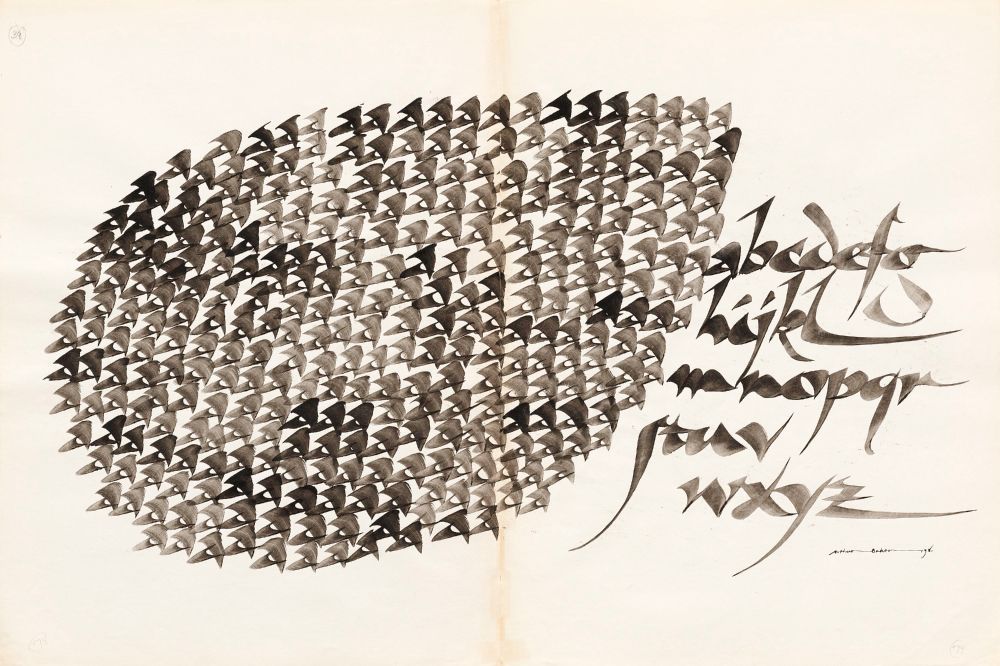 abcdefg
hijkl
mnopqr
stuv
wxyz
Arthur Baker